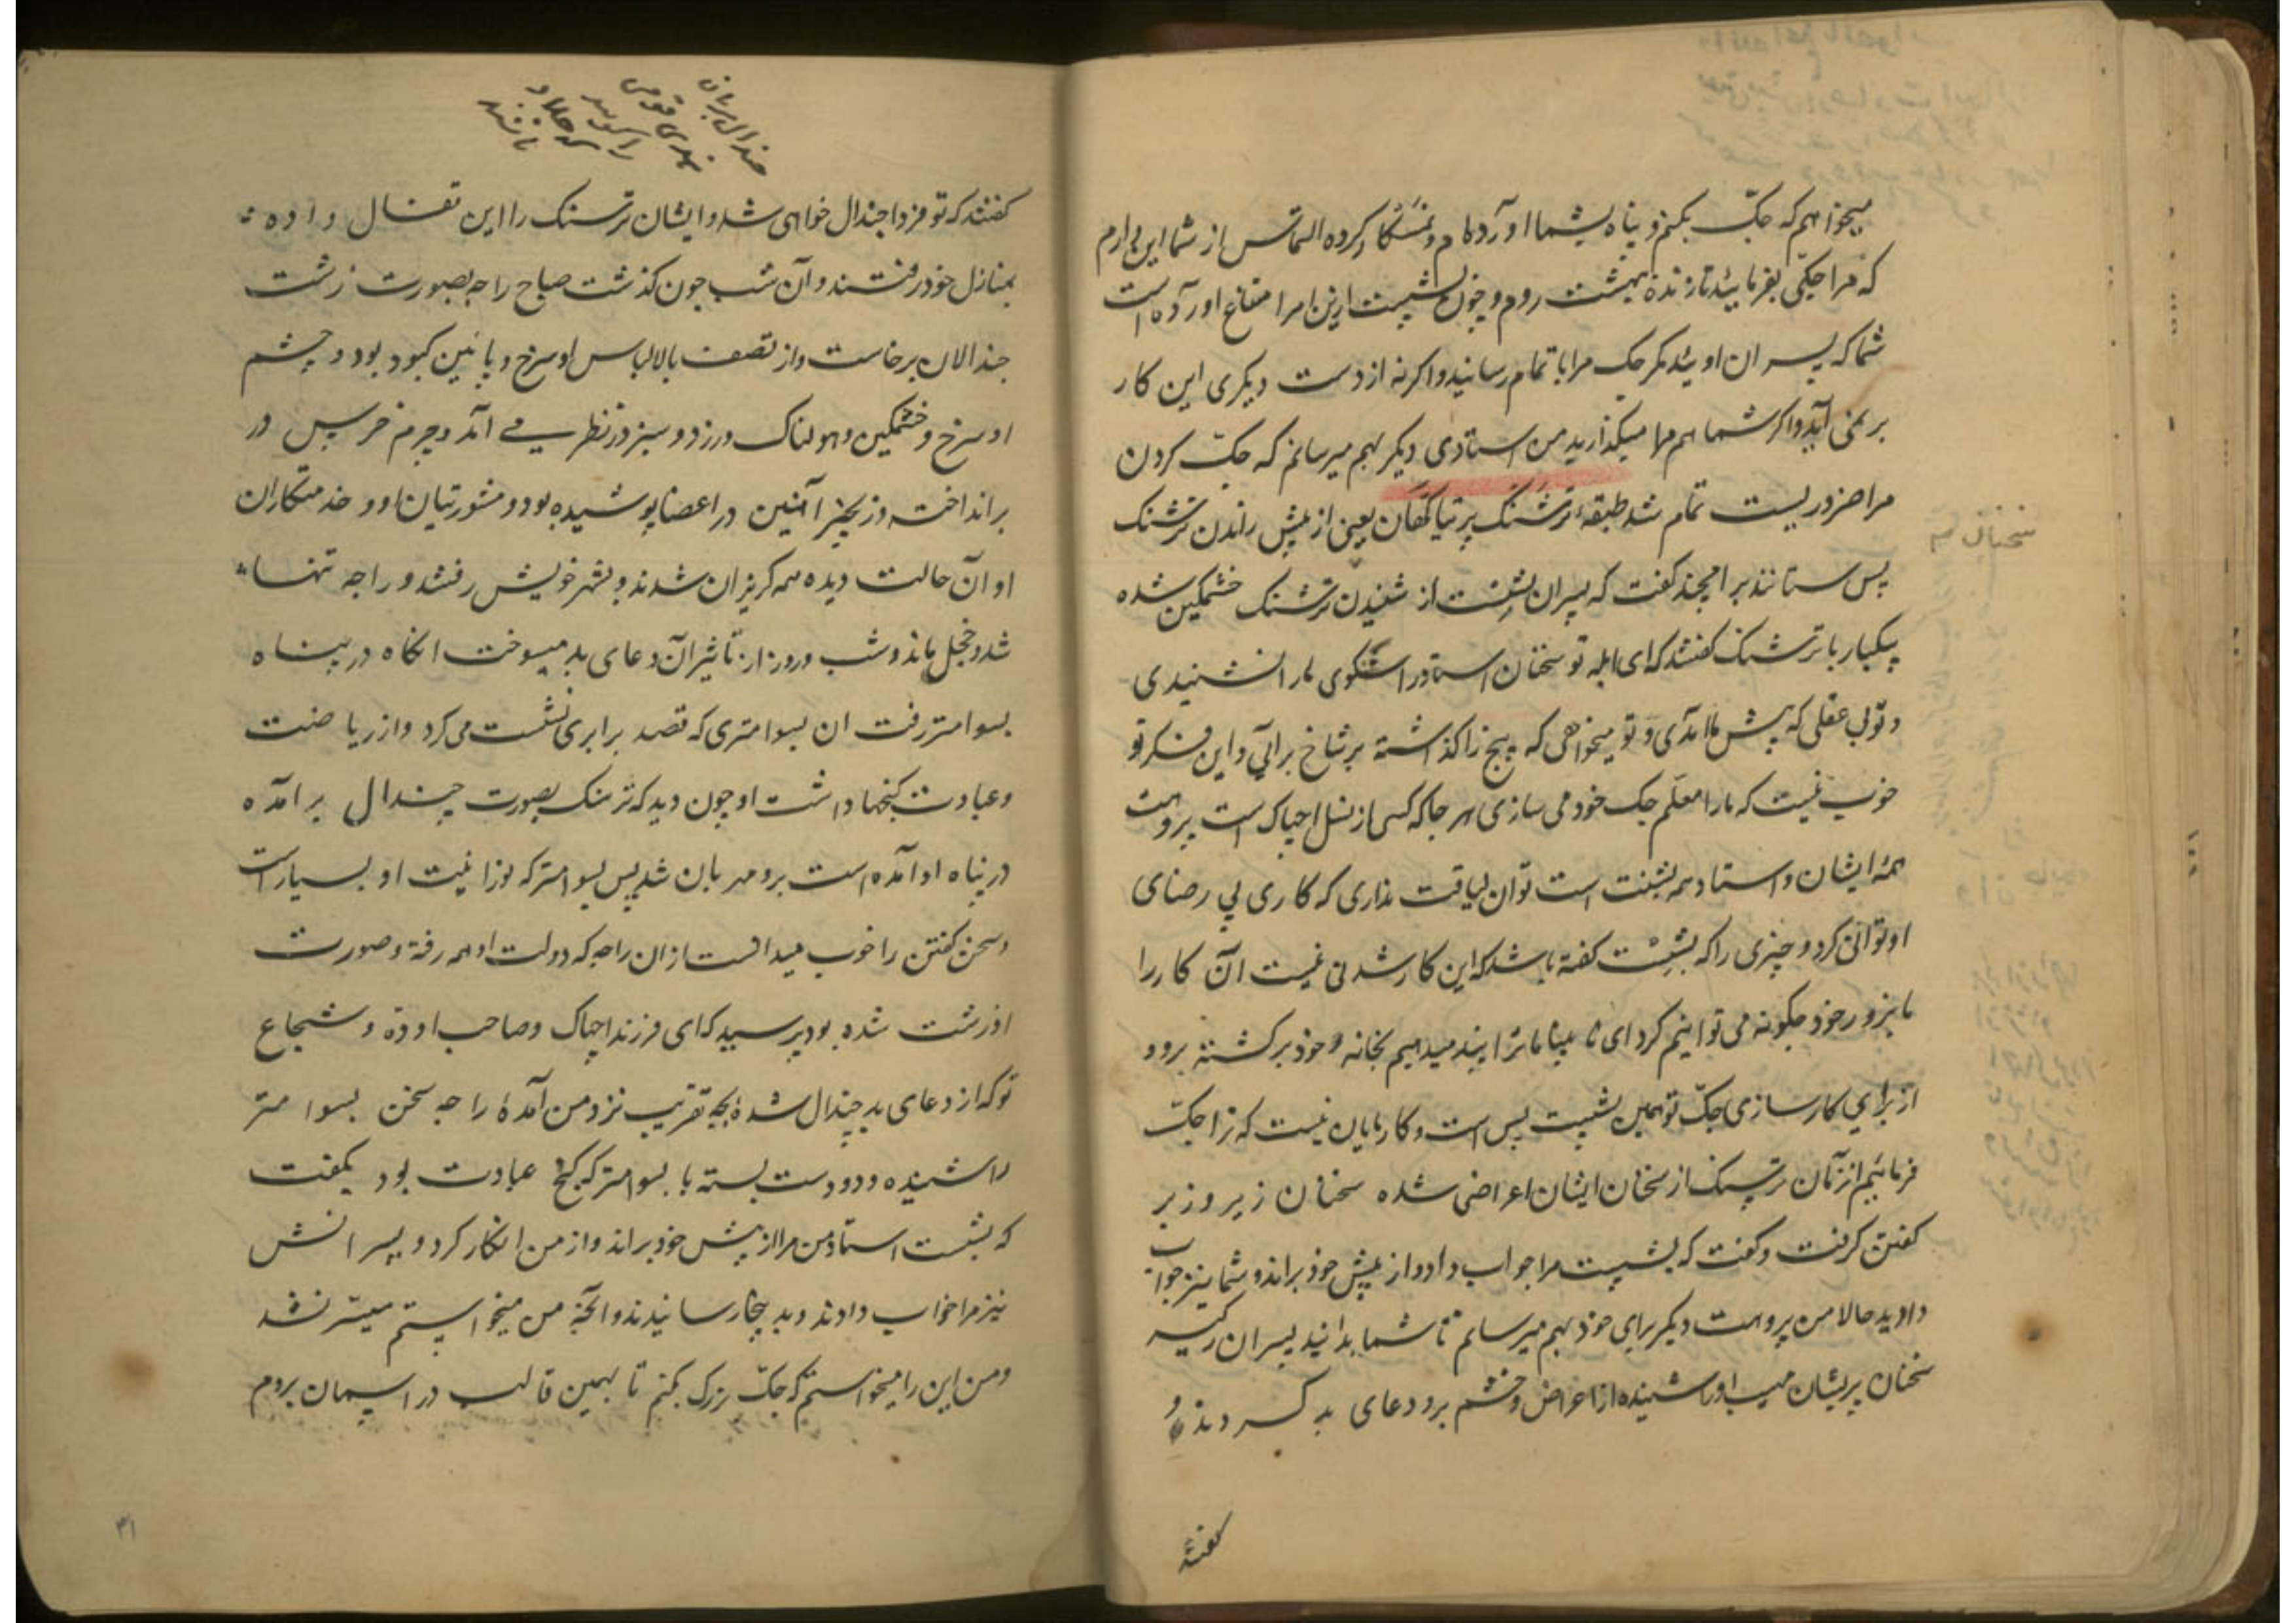 میخواهم که جک بکنم و پناه بشما آورده ام و نمسکار کرده التماس از شما این دارم
که مرا جکی بفرمائید تا زنده ببهشت روم و چون بشست ازین امر امتناع آورده است
شما که پسران اوئید مکر جک مرا باتمام رسانید و اکرنه از دست دیکری این کار
بر نمی آید و اکر شما هم مرا میکذارید من استادی دیکر بهم میرسانم که جک کردن
مرا ضرور یست تمام شد طبقه ترشنک پرتیاکهان یعنی از پیش راندن ترشنک
پس ستانند برامچند کفت که پسران بشست از شنیدن ترشنک خشمکین شده
یکبار با ترشنک کفتند که ای ابله تو سخنان استاد راستکوی ما را نشنیدی
و تو بی عقلی که پیش ما آمدی و تو میخواهی که بیخ را کذاشته بر شاخ برآیی و این فکر تو
خوب نیست که ما را معلم جک خود می سازی هر جا که کسی از نسل اجپاک است پروهت
همه ایشان و استاد همه بشست است تو آن لیاقت نداری که کاری بی رضای
او توانی کرد و چیزی را که بشست کفته باشد که این کار شدنی نیست آن کار را
ما بزور خود چکونه می توانیم کرد ای نا بینا ما ترا پند میدهیم بخانه خود برکشته برو و
از برای کارسازی جک تو همین بشست بس است و کار مایان نیست که ترا جک
فرمائیم از آن ترشنک از سخنان ایشان اعراضی شده سخنان زیر و زبر
کفتن کرفت و کفت که بشست مرا جواب داد و از پیش خود براند و شما نیز جواب
دادید حالا من پروهت دیکر برای خود بهم میرسانم تا شما بدانید پسران رکیسر
سخنان پریشان او را شنیده از اعراض و خشم برو دعای بد کردند و
کفتند
سخنان
کفتند که تو فردا چندال خواهی شد و ایشان ترسنک را این داده
بمنازل خود رفتند و آن شب چون کذشت صباح راجه بصورت زشت
چندالان برخاست و از نصف بالا لباس او سرخ و پائین کبود بود و چشم
او سرخ و خشمکین و هولناک و زرد و سبز در نظر می آمد و چرم خرس در
بر انداخته و زنجیر آهنین در اعضا پوشیده بود و مشورتیان او و خدمتکاران
او آن حالت دیده همه کریزان شدند و بشهر خویش رفتند و راجه تنها
شد و خجل ماند و شب و روز از تاثیر آن دعای بد میسوخت انکاه در پناه
بسوامتر رفت ان بسوامتری که قصد برابری بشست می کرد و از ریاضت
و عبادت کنجها داشت او چون دید که ترسنک بصورت چندال برآمده
در پناه او آمده است برو مهربان شد پس بسوامتر که نورانیت او بسیار است
و سخن کفتن را خوب میدانست از ان راجه که دولت او همه رفته و صورت
او زشت شده بود پرسید که ای فرزند اجپاک و صاحب اوده و شجاع
تو که از دعای بد چندال شدهٔ بچه تقریب نزد من آمدهٔ راجه سخن بسوامتر
را شنیده و دو دست بسته با بسوامتر که کنج عبادت بود بکفت
که بشست استاد من مرا از پیش خود براند و از من انکار کرد و پسرانش
نیز مرا جواب دادند و بد بجا رسانیدند و آنچه من میخواستم میسر نشد
و من این را میخواستم که جک بزرک بکنم تا بهمین قالب در آسمان بروم
۴۱